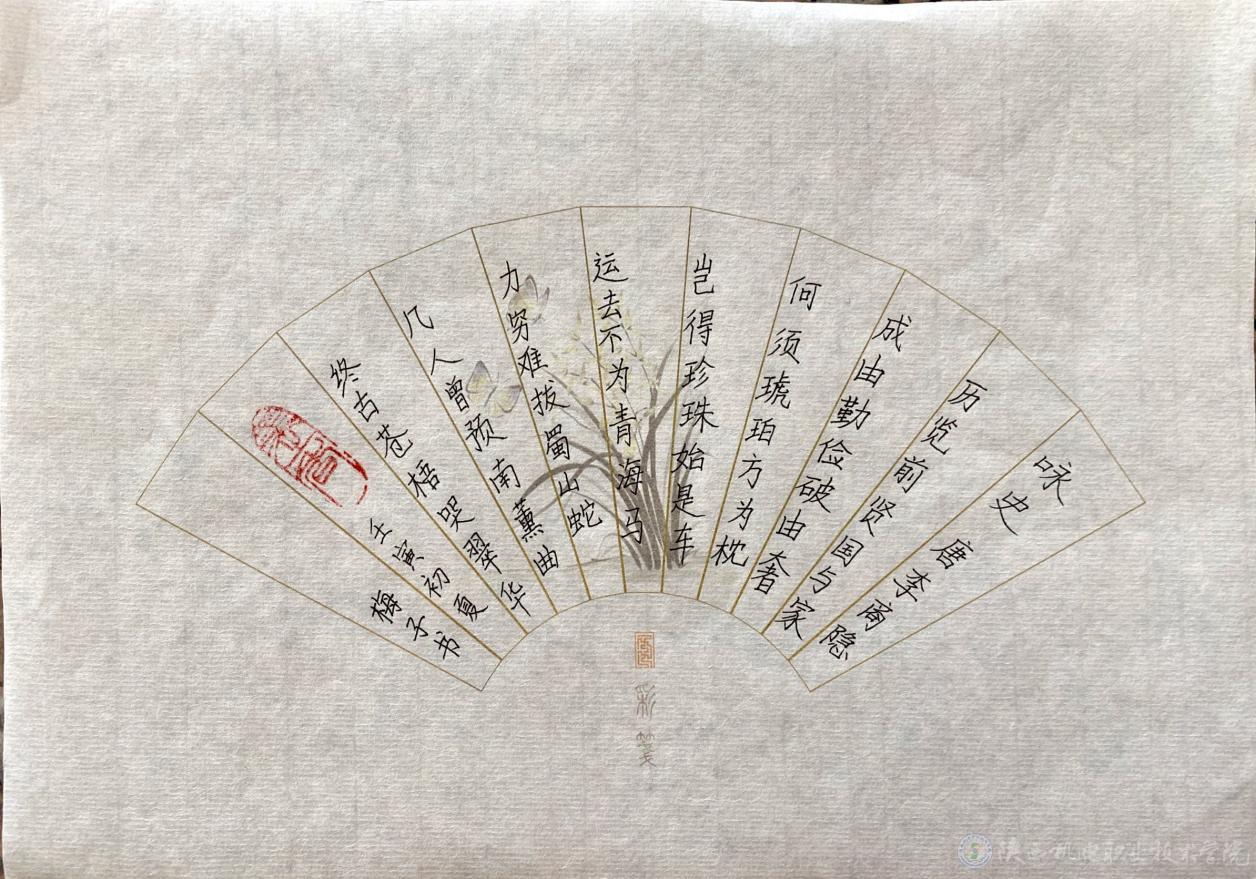 咏史 唐 李商隐
历览前贤国与家
成由勤俭破由奢
何须琥珀方为枕
岂得珍珠始是车
运去不为青海马
力穷难拔蜀山蛇
几人曾预南薰曲
终古苍梧哭翠华
壬寅初夏
梅子书
彩笺
陕西机电职业技术学院